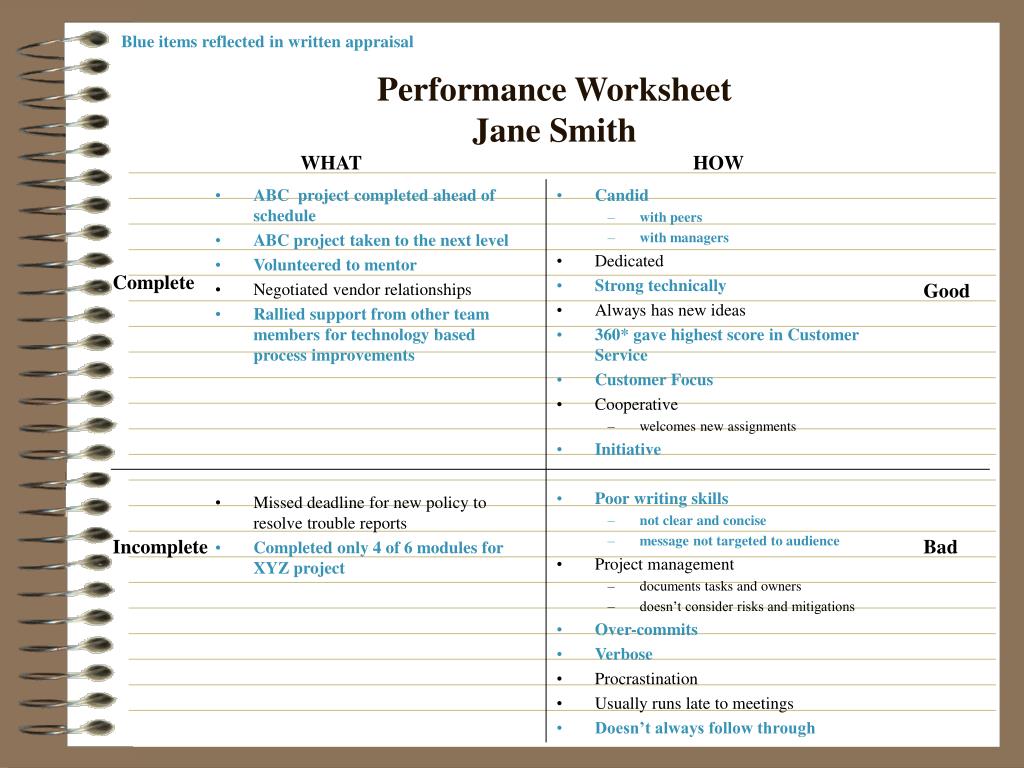 Blue items reflected in written appraisal
Performance Worksheet
Jane Smith
WHAT
HOW
Complete
• ABC project completed ahead of
schedule
• ABC project taken to the next level
• Volunteered to mentor
• Negotiated vendor relationships
• Rallied support from other team
members for technology based
process improvements
• Candid
– with peers
– with managers
• Dedicated
• Strong technically
• Always has new ideas
• 360* gave highest score in Customer
Service
• Customer Focus
• Cooperative
– welcomes new assignments
• Initiative
Good
Incomplete
• Missed deadline for new policy to
resolve trouble reports
• Completed only 4 of 6 modules for
XYZ project
• Poor writing skills
– not clear and concise
– message not targeted to audience
• Project management
– documents tasks and owners
– doesn’t consider risks and mitigations
• Over-commits
• Verbose
• Procrastination
• Usually runs late to meetings
• Doesn’t always follow through
Bad